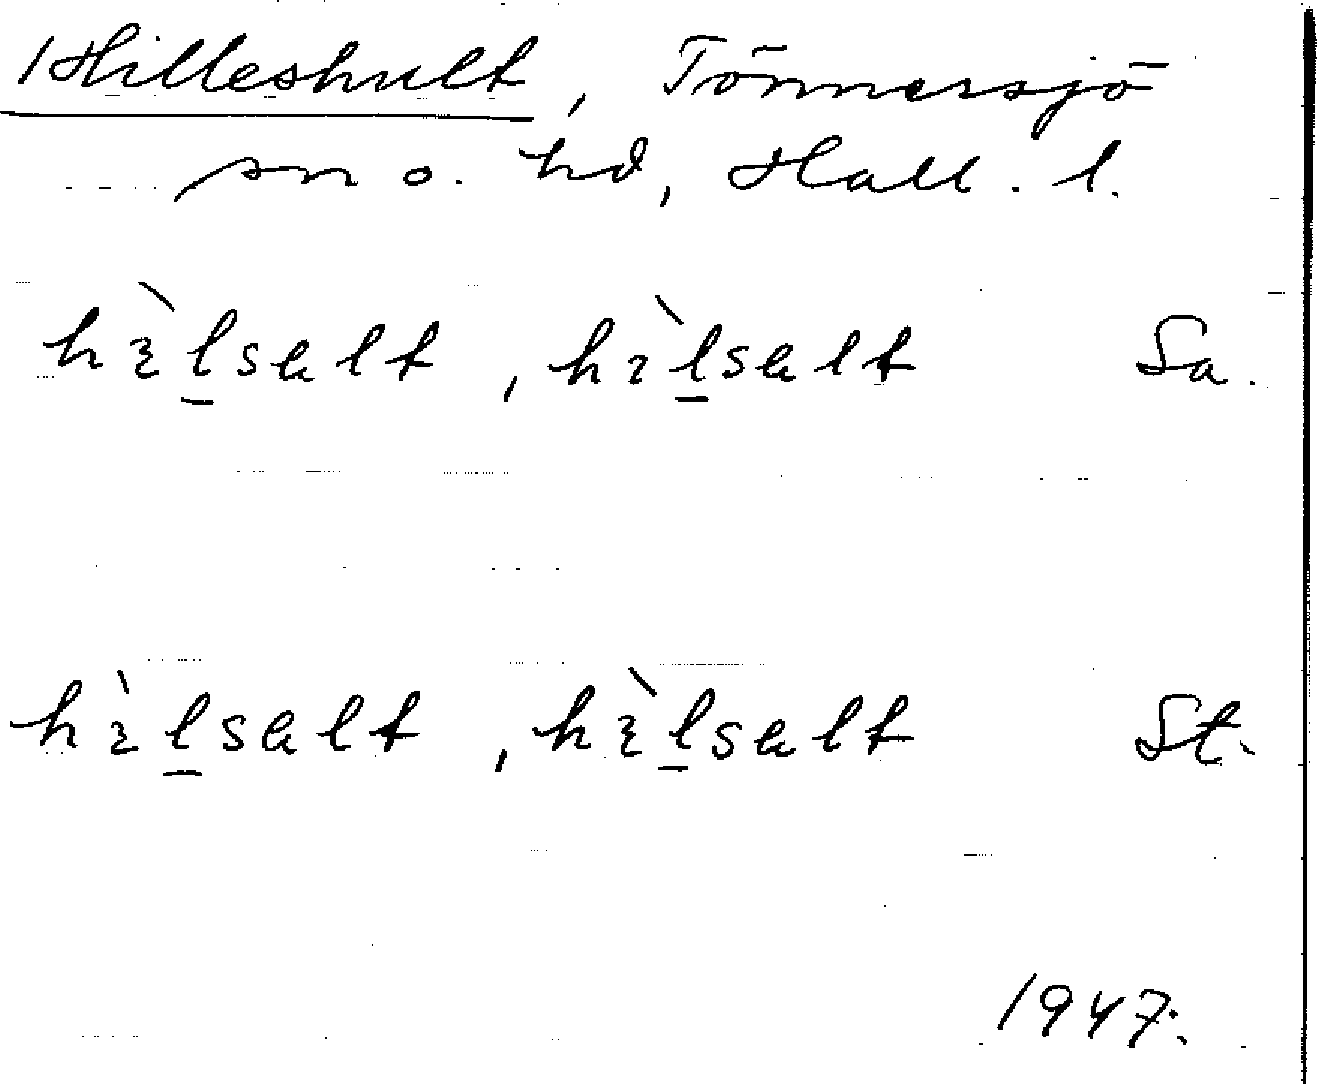 Hilleshult, Tönnersjö
sn o. hd, Hall. l.
hɪ̀l̠salt, hɪ̀l̠salt Sa.
hɪ̀l̠salt, hɪ̀l̠salt St.
1947.